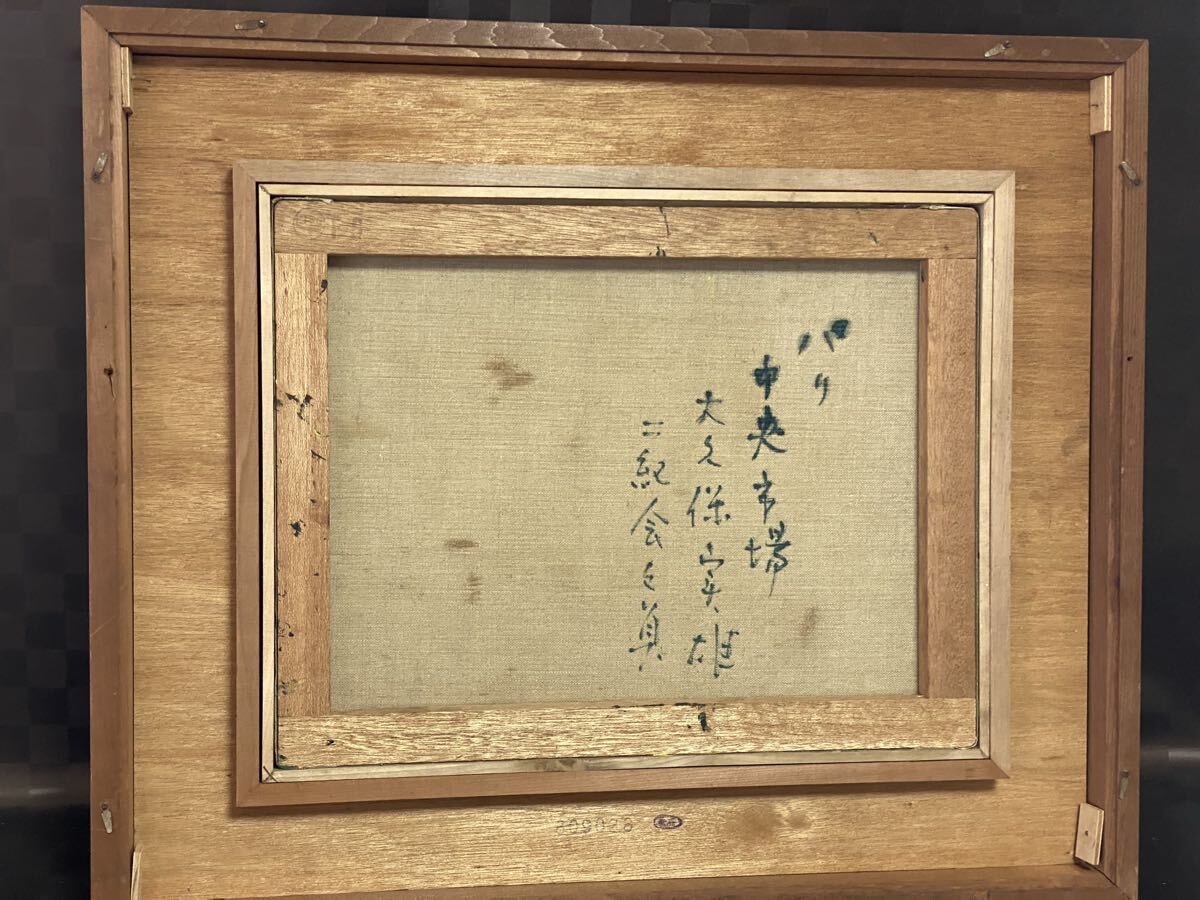 パリ
中央市場
大久保実雄
二紀会委員